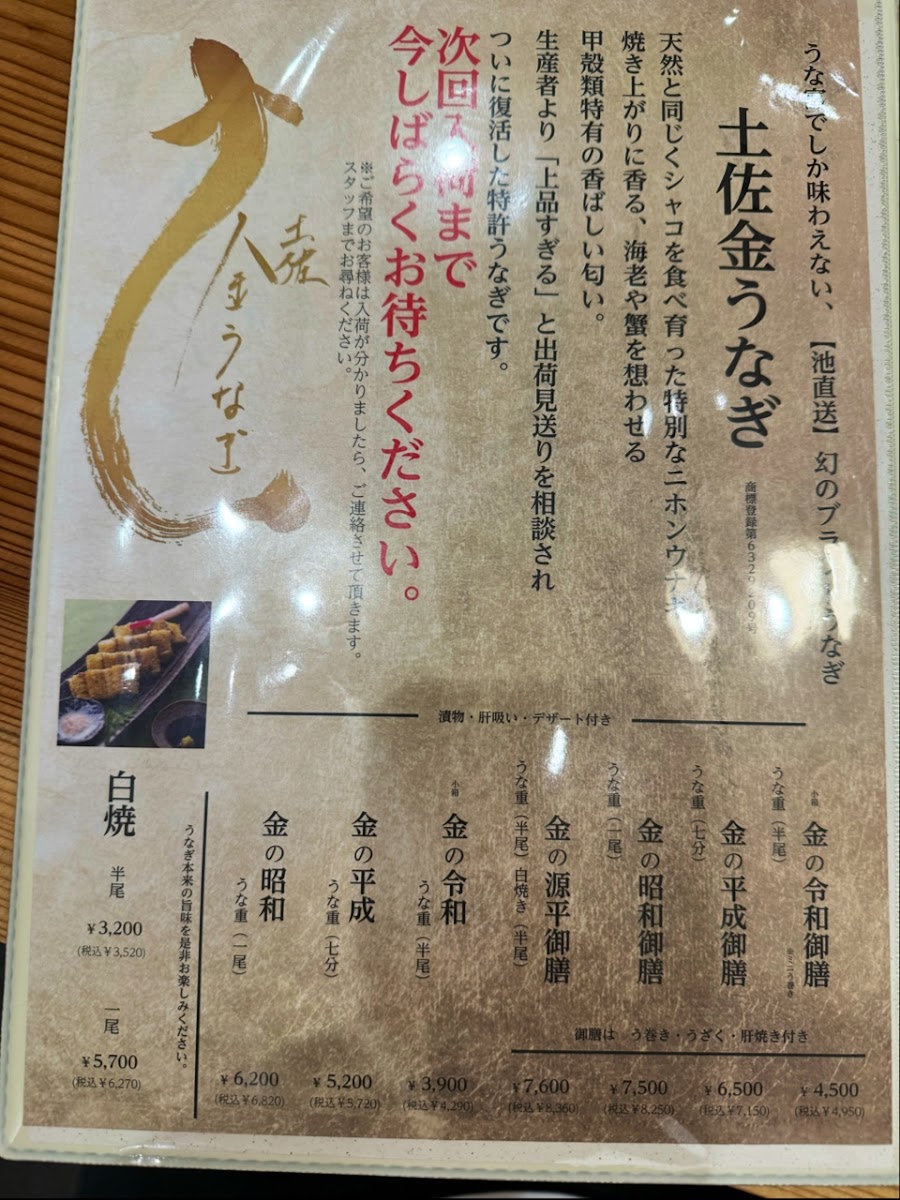 うな でしか味わえない、【池直送】幻のブラ うなぎ
土佐金うなぎ
商標登録第632 09号
天然と同じくシャコを食べ育った特別なニホンウナギ
焼き上がりに香る、海老や蟹を想わせる
甲殻類特有の香ばしい匂い。
生産者より「上品すぎる」と出荷見送りを相談され
ついに復活した特許うなぎです。
次回入荷まで
今しばらくお待ちください。
※ご希望のお客様は入荷が分かりましたら、ご連絡させて頂きます。
スタッフまでお尋ねください。
土佐
金うなぎ
漬物・肝吸い・デザート付き
小箱 金の令和御膳
※ミニう巻き
うな重(半尾)
¥4,500
(税込¥4,950)
金の平成御膳
うな重(七分)
¥6,500
(税込¥7,150)
金の昭和御膳
うな重(一尾)
¥7,500
(税込¥8,250)
金の源平御膳
うな重(半尾)白焼き(半尾)
¥7,600
(税込¥8,360)
御膳は う巻き・うざく・肝焼き付き
小箱 金の令和
うな重(半尾)
¥3,900
(税込¥4,290)
金の平成
うな重(七分)
¥5,200
(税込¥5,720)
金の昭和
うな重(一尾)
¥6,200
(税込¥6,820)
うなぎ本来の旨味を是非お楽しみください。
白焼
半尾
¥3,200
(税込¥3,520)
一尾
¥5,700
(税込¥6,270)